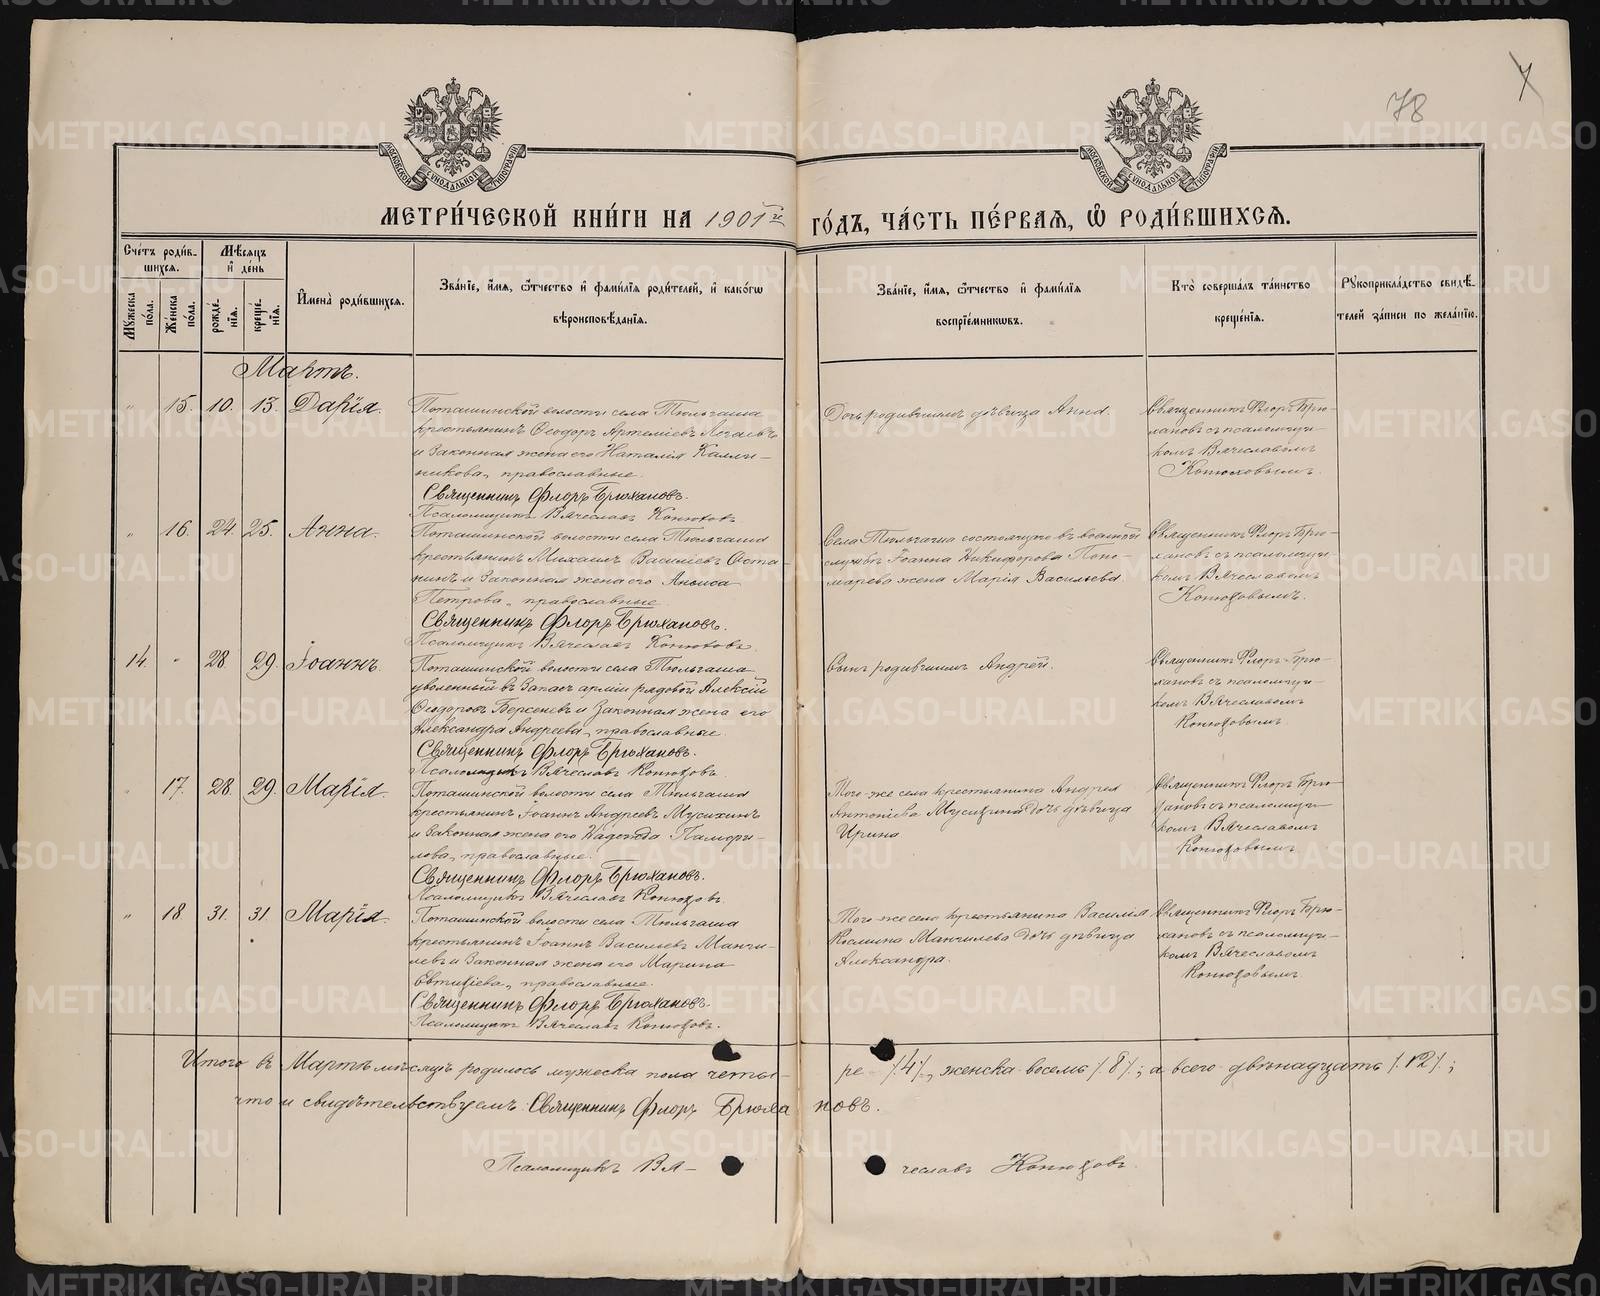 78
7
МОСКОВСКОЙ СѴНОДАЛЬНОЙ ТИПОГРАФІИ
МОСКОВСКОЙ СѴНОДАЛЬНОЙ ТИПОГРАФІИ
МЕТРИ́ЧЕСКОЙ КНИ́ГИ НА 1901й ГО́ДЪ, ЧА́СТЬ ПЕ́РВАѦ, Ѡ҆ РОДИ́ВШИХСѦ.
Сче́тъ роди́в-
шихсѧ.
Мѣ́сѧцъ
и҆ де́нь
Мꙋ́жеска по́ла.
Же́нска по́ла.
рожде́-
нїѧ.
креще́-
нїѧ.
И҆мена̀ роди́вшихсѧ.
Зва́нїе, и҆́мѧ, ѻ҆́тчество и҆ фами́лїѧ роди́телей, и҆ како́гѡ
вѣроисповѣ́данїѧ.
Зва́нїе, и҆́мѧ, ѻ҆́тчество и҆ фами́лїѧ
воспрїе́мникѡвъ.
Кто̀ соверша́лъ та́инство
креще́нїѧ.
Рꙋкоприкла́дство свидѣ́-
телей за́писи по жела́нїю.
Мартъ.
" 15. 10. 13. Дарія.
Поташинской волости села Тюльгаша
крестьянинъ Ѳеодоръ Артеміевъ
и законная жена его Наталія Калли-
никова, православные.
Священникъ Флоръ Брюхановъ.
Псаломщикъ Вячеславъ Конюховъ
Дочь родившимъ дѣвица Анна.
Священникъ Флоръ Брю-
хановъ съ псаломщи-
комъ Вячеславомъ
Конюховымъ.
" 16. 24. 25. Анна.
Поташинской волости села Тюльгаша
крестьянинъ Михаилъ Васильевъ Оста-
нинъ и законная жена его Анѳиса
Петрова, православные.
Священникъ Флоръ Брюхановъ.
Псаломщикъ Вячеславъ Конюховъ.
Села Тюльгаша состоящаго въ военной
службѣ Іоанна Никифорова Поно-
марева жена Марія Васильева
Священникъ Флоръ Брю-
хановъ съ псаломщи-
комъ Вячеславомъ
Конюховымъ.
14. " 28. 29. Іоаннъ.
Поташинской волости села Тюльгаша
уволенный въ запасъ арміи рядовой Алексій
Ѳеодоровъ Берсеневъ и законная жена его
Александра Андреева, православные.
Священникъ Флоръ Брюхановъ.
Псаломщикъ Вячеславъ Конюховъ.
Сынъ родившимъ Андрей.
Священникъ Флоръ Брю-
хановъ съ псаломщи-
комъ Вячеславомъ
Конюховымъ
" 17. 28. 29. Марія.
Поташинской волости села Тюльгаша
крестьянинъ Іоаннъ Андреевъ Мусихинъ
и законная жена его Надежда Памфи-
лова, православные.
Священникъ Флоръ Брюхановъ.
Псаломщикъ Вячеславъ Конюховъ.
Того-же села крестьянина Андрея
Антоніева Мусихина дочь дѣвица
Ирина
Священникъ Флоръ Брю-
хановъ съ псаломщи-
комъ Вячеславомъ
Конюховымъ.
" 18. 31. 31. Марія.
Поташинской волости села Тюльгаша
крестьянинъ Іоаннъ Васильевъ Манчи-
левъ и законная жена его Марина
Евтихіева, православные.
Священникъ Флоръ Брюхановъ.
Псаломщикъ Вячеславъ Конюховъ.
Того-же села крестьянина Василія
Космина Манчилева дочь дѣвица
Александра.
Священникъ Флоръ Брю-
хановъ съ псаломщи-
комъ Вячеславомъ
Конюховымъ
Итого въ Мартѣ мѣсяцѣ родилось мужеска пола четы-ре /.4/., женска восемь /.8/.; а всего двѣнадцать /.12/.;
что и свидѣтельствуемъ: Священникъ Флоръ Брюхановъ.
Псаломщикъ Вя-чеславъ Конюховъ.
METRIKI.GASO-URAL.RU